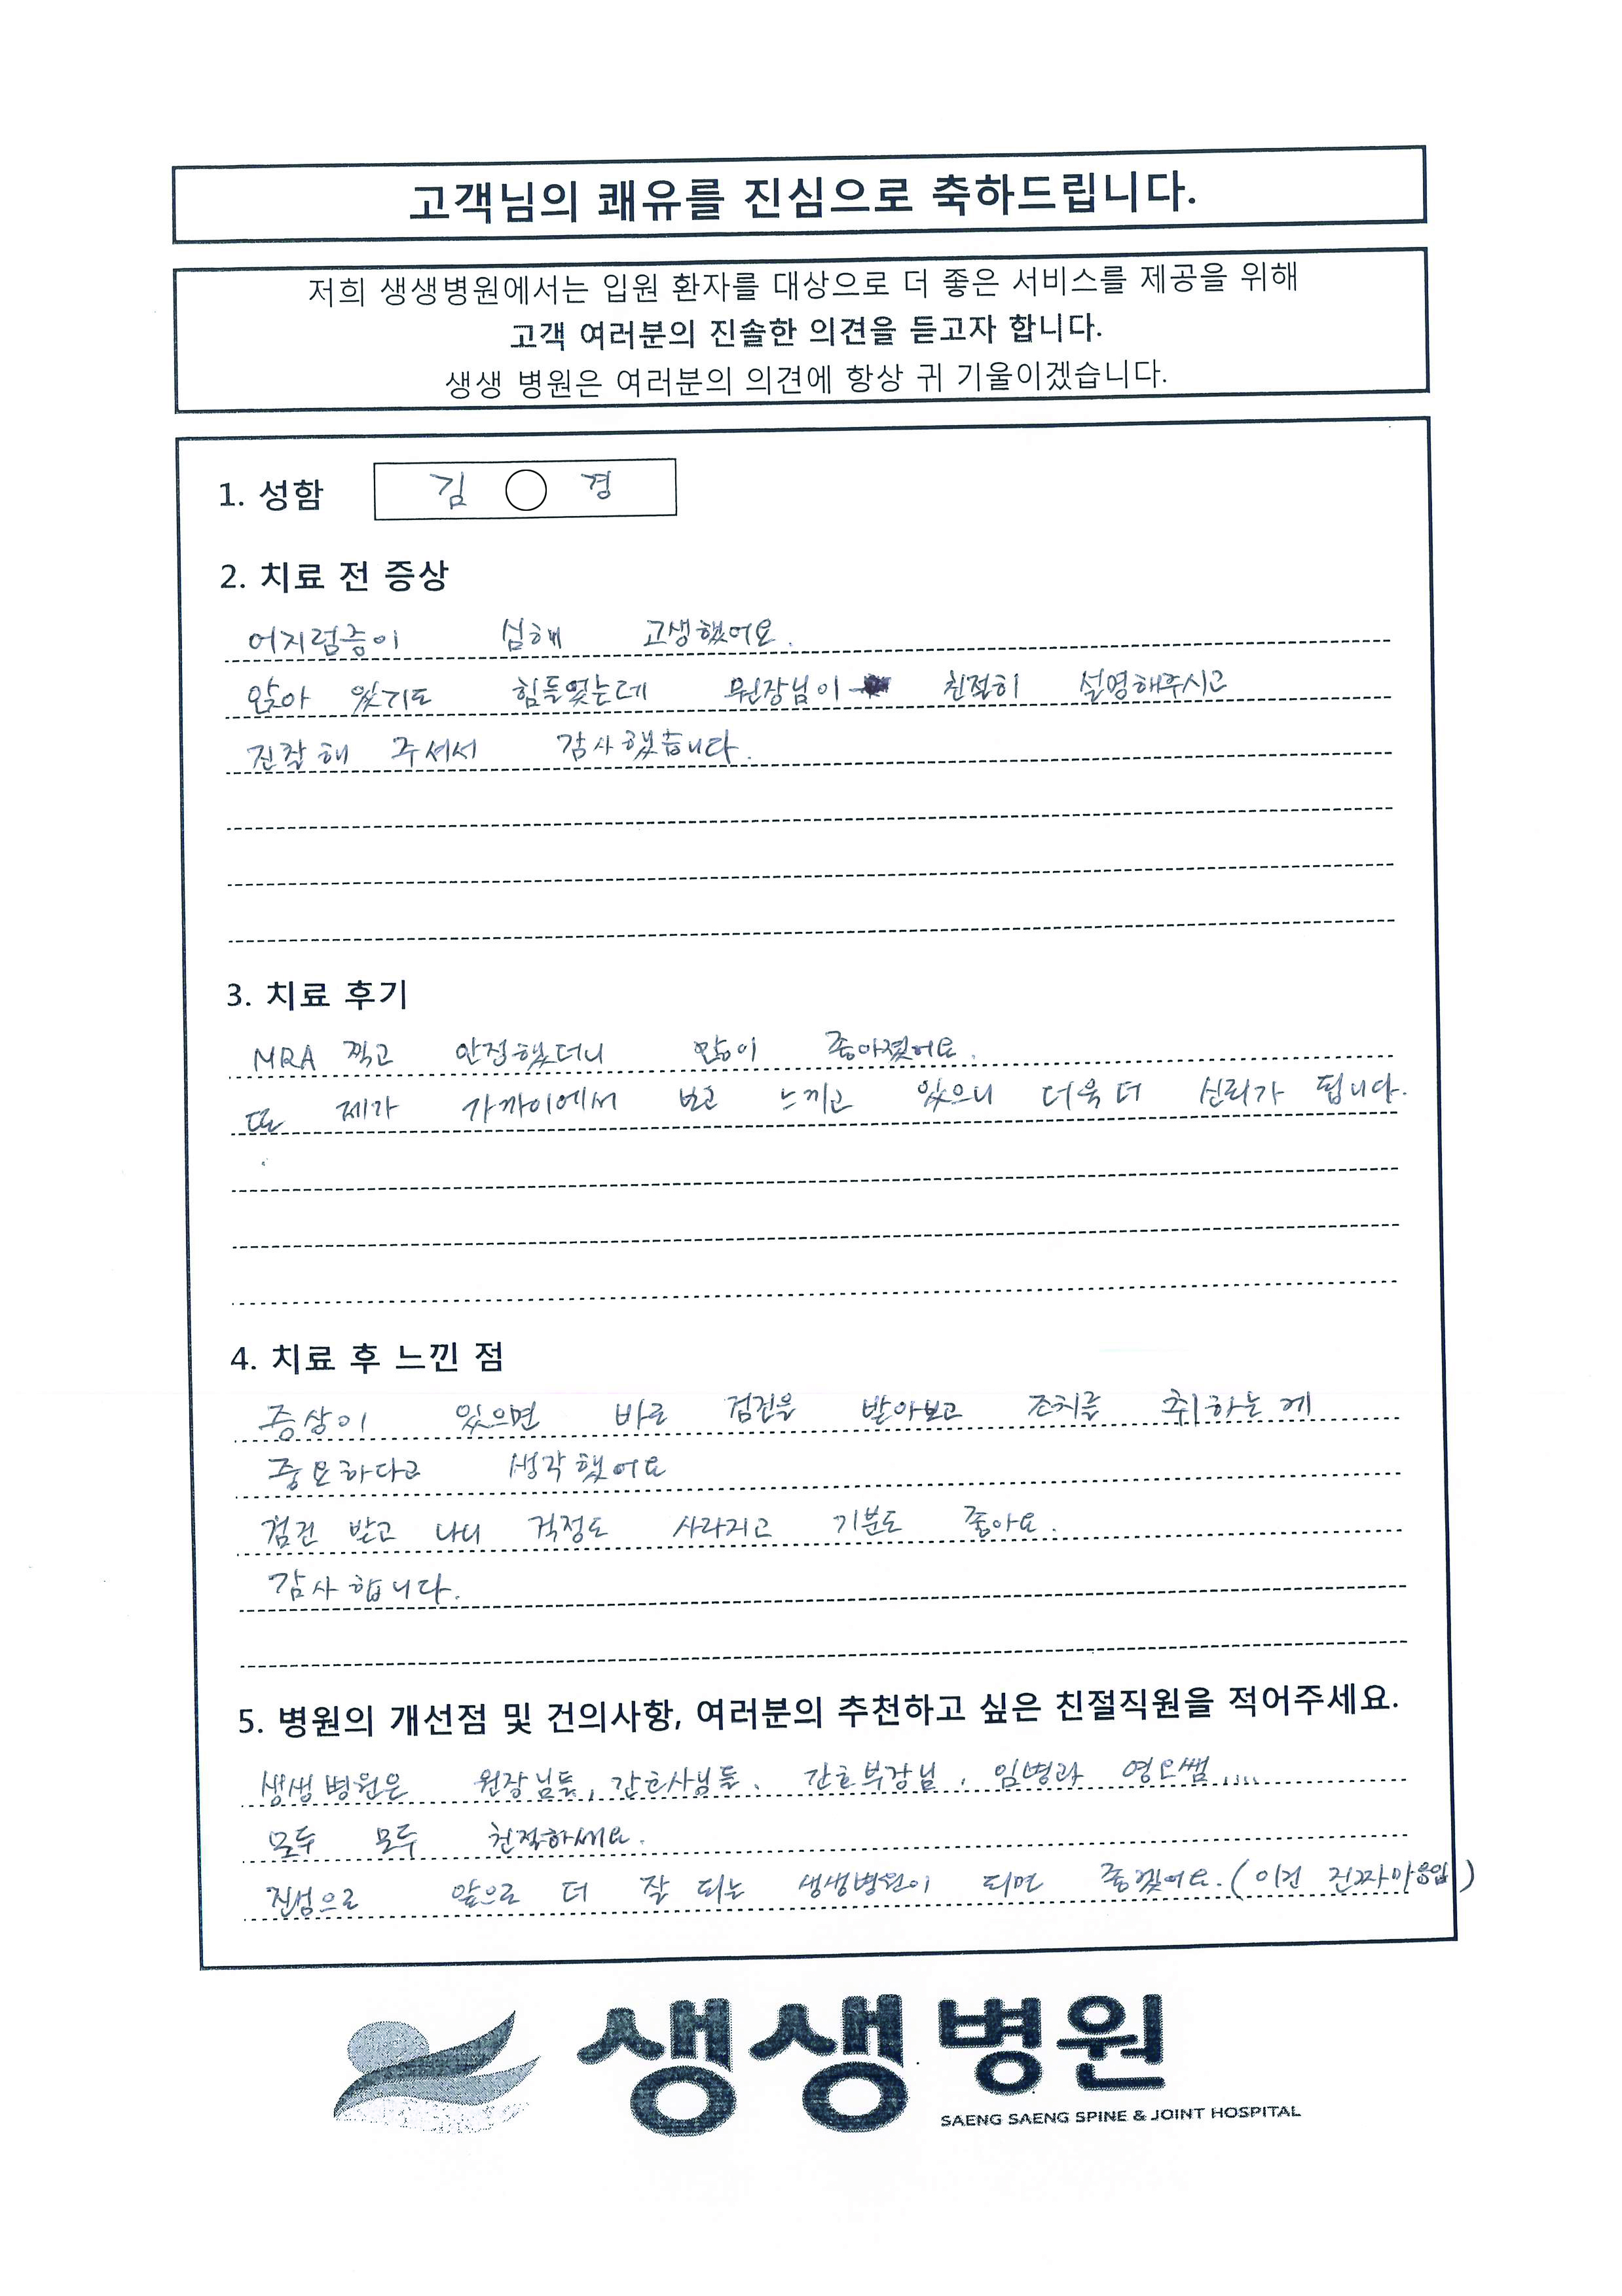 고객님의 쾌유를 진심으로 축하드립니다.
저희 생생병원에서는 입원 환자를 대상으로 더 좋은 서비스를 제공을 위해
고객 여러분의 진솔한 의견을 듣고자 합니다.
생생 병원은 여러분의 의견에 항상 귀 기울이겠습니다.
1. 성함 김 ○ 경
2. 치료 전 증상
어지럼증이 심해 고생했어요.
앉아 있기도 힘들었는데 원장님이 친절히 설명해주시고
진찰해 주셔서 감사했습니다.
3. 치료 후기
MRA 찍고 안정했더니 많이 좋아졌어요.
또 제가 가까이에서 보고 느끼고 있으니 더욱 더 신뢰가 됩니다.
4. 치료 후 느낀 점
증상이 있으면 바로 검진을 받아보고 조치를 취하는게
중요하다고 생각했어요
검진 받고 나니 걱정도 사라지고 기분도 좋아요.
감사합니다.
5. 병원의 개선점 및 건의사항, 여러분의 추천하고 싶은 친절직원을 적어주세요.
생생병원은 원장님들, 간호사님들, 간호부장님, 임병과 쌤....
모두 모두 친절하세요.
진심으로 앞으로 더 잘 되는 생생병원이 되면 좋겠어요.(이건 진짜마음임)
생생병원
SAENG SAENG SPINE & JOINT HOSPITAL